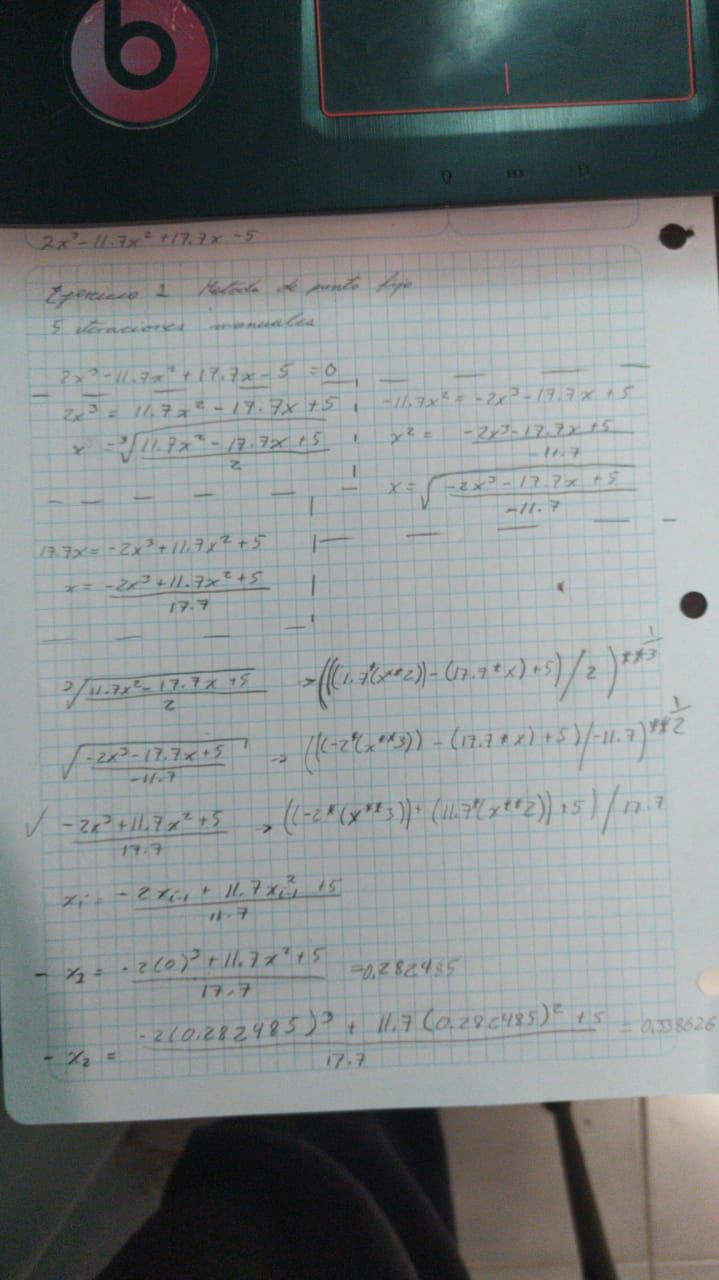 b
2x³-11.7x²+17.7x-5
Ejercicio 2 Metodo de punto fijo
5 iteraciones manuales
2x³-11.7x²+17.7x-5=0
2x³ = 11.7x² - 17.7x + 5
x = ³√((11.7x² - 17.7x + 5)/2)
-11.7x² = -2x³ - 17.7x + 5
x² = (-2x³ - 17.7x + 5)/-11.7
x = √((-2x³ - 17.7x + 5)/-11.7)
17.7x = -2x³ + 11.7x² + 5
x = (-2x³ + 11.7x² + 5)/17.7
³√((11.7x² - 17.7x + 5)/2) → (((1.7*(x**2)) - (17.7*x) + 5)/2)**1/3
√((-2x³ - 17.7x + 5)/-11.7) → (((-2*(x**3)) - (17.7*x) + 5)/-11.7)**1/2
√ (-2x³ + 11.7x² + 5)/17.7 → ((-2*(x**3)) + (11.7*(x**2)) + 5)/17.7
xi = (-2xi-1 + 11.7xi-1² + 5)/17.7
- x1 = (-2(0)³ + 11.7x² + 5)/17.7 = 0.282485
- x2 = (-2(0.282485)³ + 11.7(0.282485)² + 5)/17.7 = 0.338626